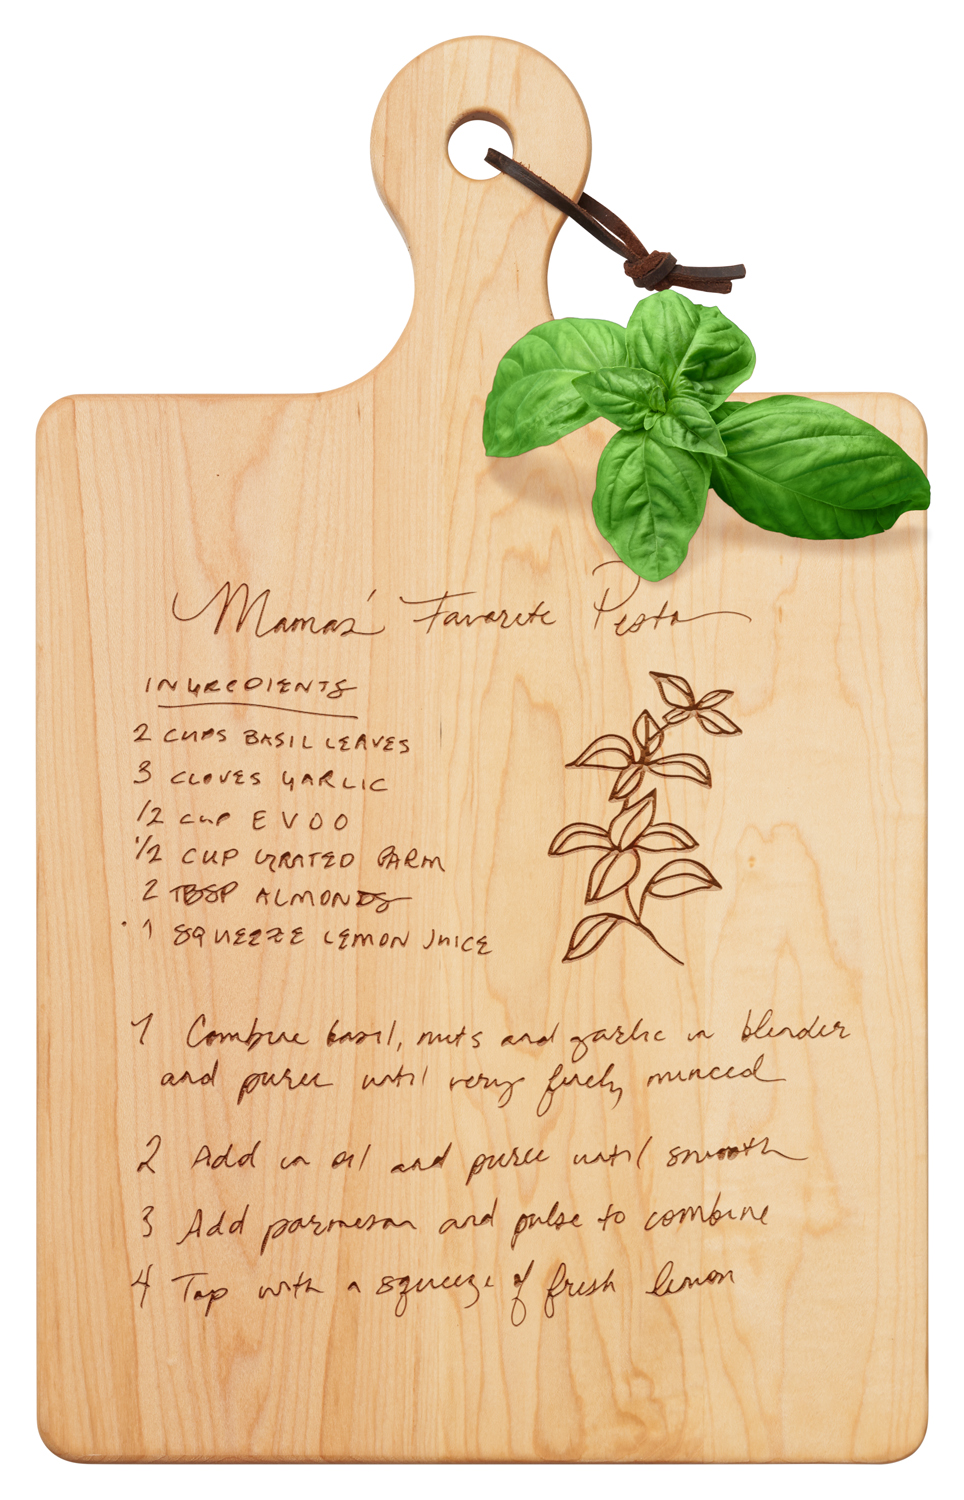 Mamas' Favorite Pesto
INGREDIENTS
2 CUPS BASIL LEAVES
3 CLOVES GARLIC
1/2 CUP EVOO
1/2 CUP GRATED PARM
2 TBSP ALMONDS
1 SQUEEZE LEMON JUICE
1 Combine basil, nuts and garlic in blender
and puree until very finely minced
2 Add in oil and puree until smooth
3 Add parmesan and pulse to combine
4 Top with a squeeze of fresh lemon